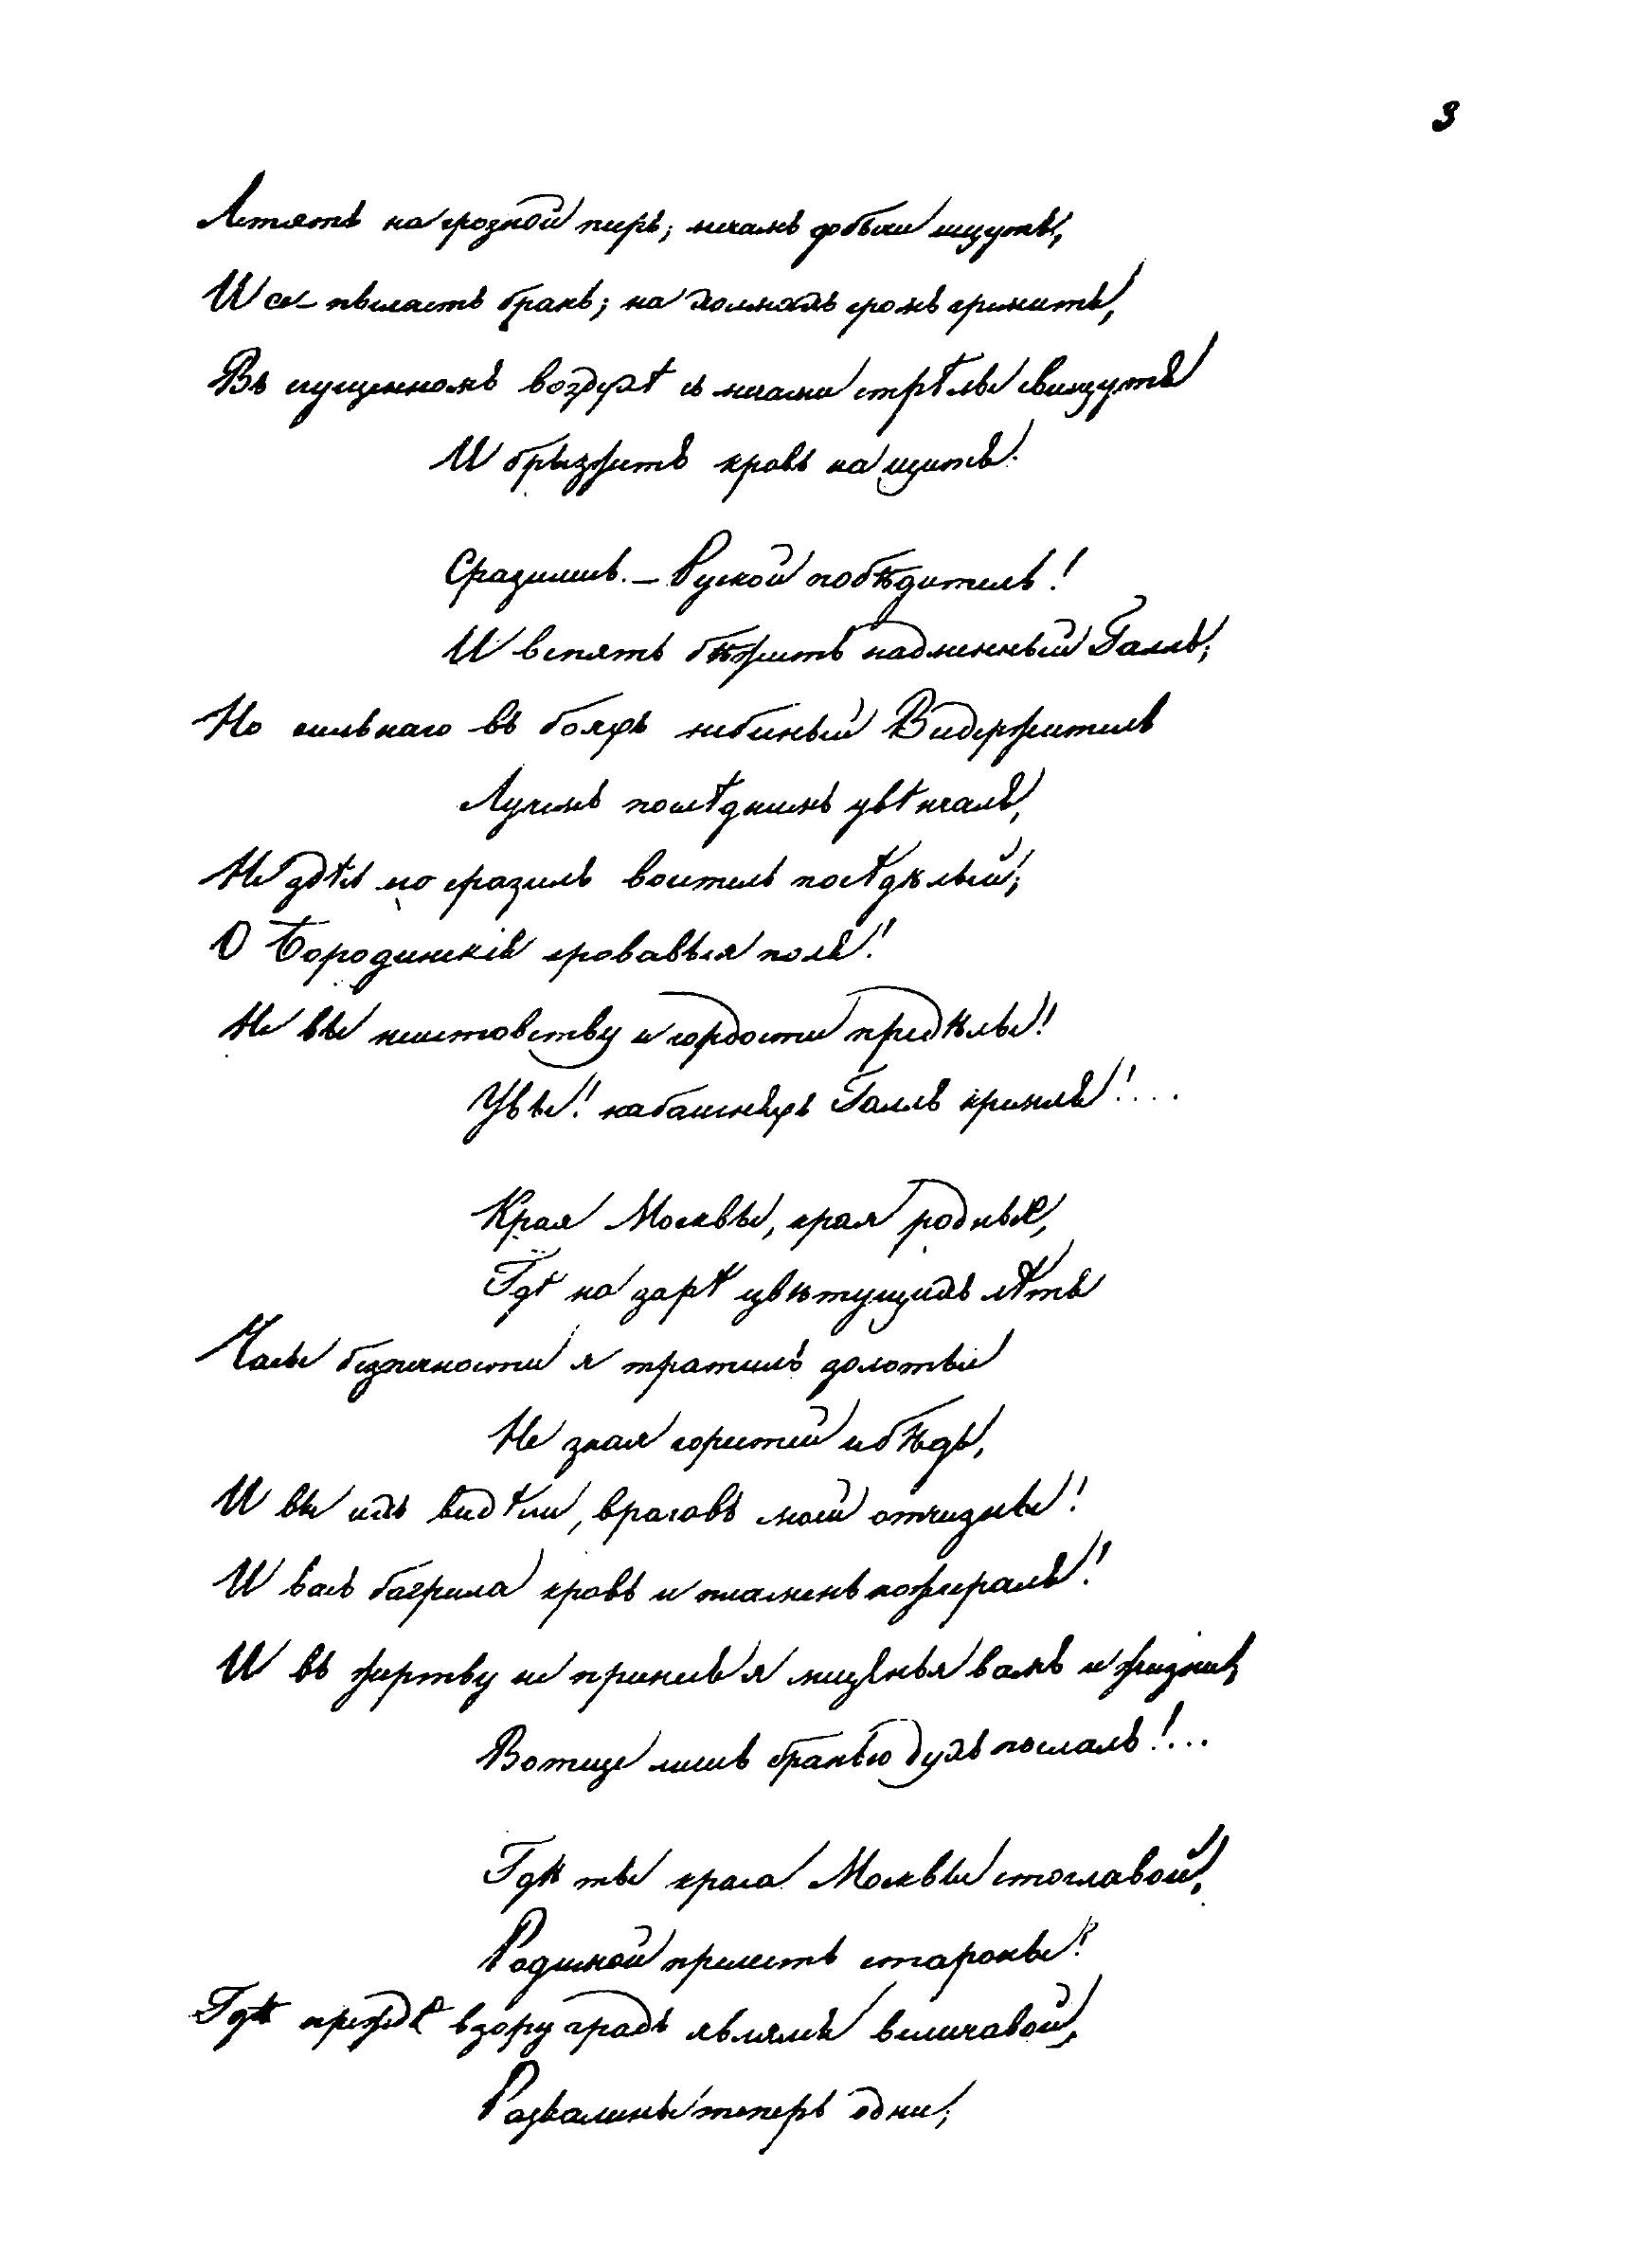 3
Летятъ на грозной пиръ; мечамъ добычи ищутъ,
И се – пылаетъ брань; на холмахъ громъ гремитъ,
Въ сгущенномъ воздухѣ съ мечами стрѣлы свищутъ
И брызжетъ кровь на щитъ.
Сразились. – Руской побѣдитель!
И вспять бѣжитъ надменный Галлъ;
Но сильнаго въ бояхъ небесный Вседержитель
Лучемъ послѣднимъ увѣнчалъ,
Не здѣсь его сразилъ воитель посѣдѣлый;
О Бородинскіе кровавыя поля!
Не вы неистовству и гордости предѣлы!
Увы! на башняхъ Галлъ кремля!....
Края Москвы, края родные,
Гдѣ на зарѣ цвѣтущихъ лѣтъ
Часы безпечности я тратилъ золотые
Не зная горестей и бѣдъ,
И вы ихъ видѣли, враговъ моей отчизны!
И васъ багрила кровь и пламень пожиралъ!
И въ жертву не принесъ я мщенья вамъ и жизни;
Вотще лишь гнѣвомъ духъ пылалъ!...
Гдѣ ты краса Москвы стоглавой,
Родимой прелесть стороны?
Гдѣ прежде взору градъ являлся величавой,
Развалины теперь одни;